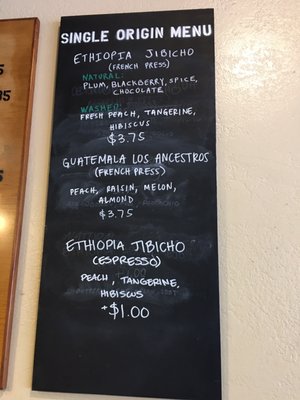 SINGLE ORIGIN MENU
ETHIOPIA JIBICHO
(FRENCH PRESS)
NATURAL:
PLUM, BLACKBERRY, SPICE,
CHOCOLATE
WASHED:
FRESH PEACH, TANGERINE,
HIBISCUS
$3.75
GUATEMALA LOS ANCESTROS
(FRENCH PRESS)
PEACH, RAISIN, MELON,
ALMOND
$3.75
ETHIOPIA JIBICHO
(ESPRESSO)
PEACH, TANGERINE,
HIBISCUS
+$1.00